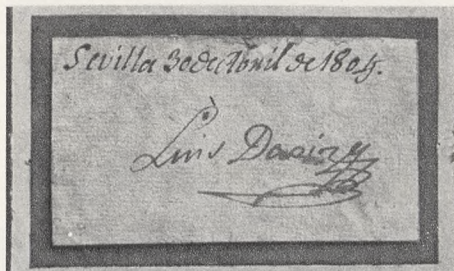 Sevilla 30 de Abril de 1804.
Luis Daoiz